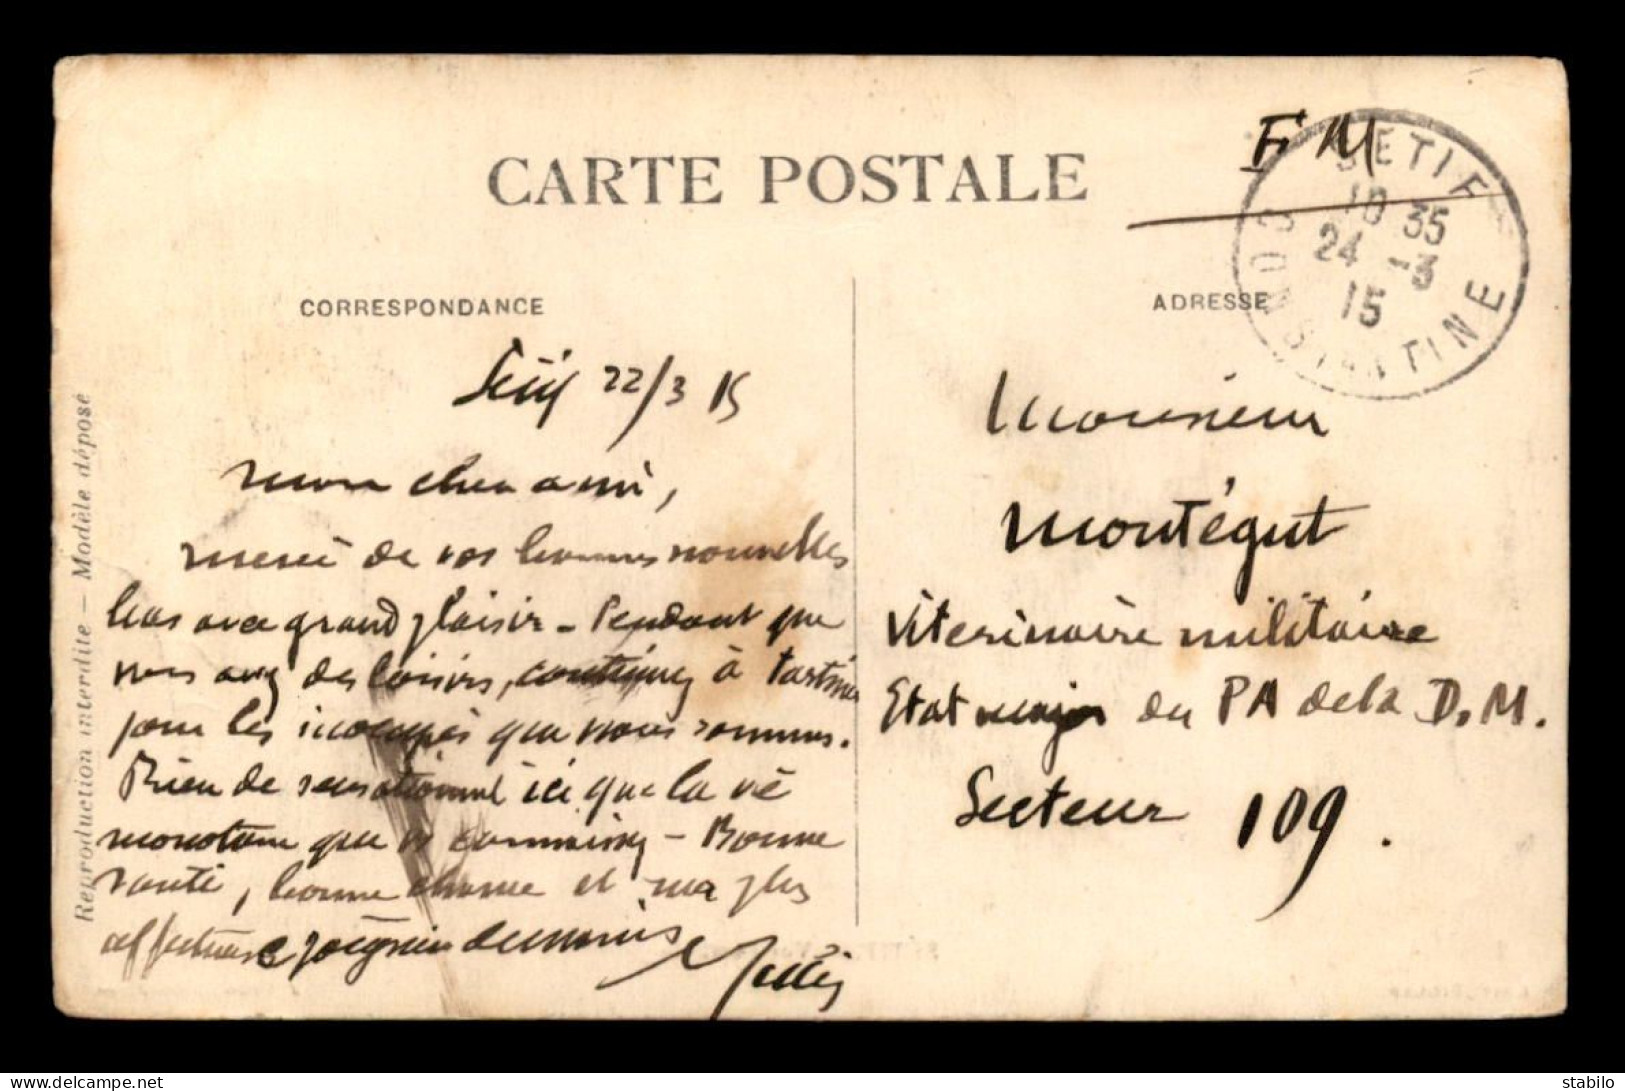 CARTE POSTALE
F M
SETIF
10 35
24 -3
15
CONSTANTINE
CORRESPONDANCE
ADRESSE
Sétif 22/3 15
mon cher ami,
merci de vos bonnes nouvelles
lues avec grand plaisir - Pendant que
vous avez des loisirs, continuez à tartiner
pour les inoccupés que nous sommes.
Rien de sensationnel ici que la vie
monotone que vs connaissez - Bonne
santé, bonne chance et ma plus
affectueuse poignée de mains
Monsieur
Montégut
Vétérinaire militaire
Etat major du PA de la D.M.
Secteur 109.
Reproduction interdite - Modèle déposé
delcampe.net
stabilo